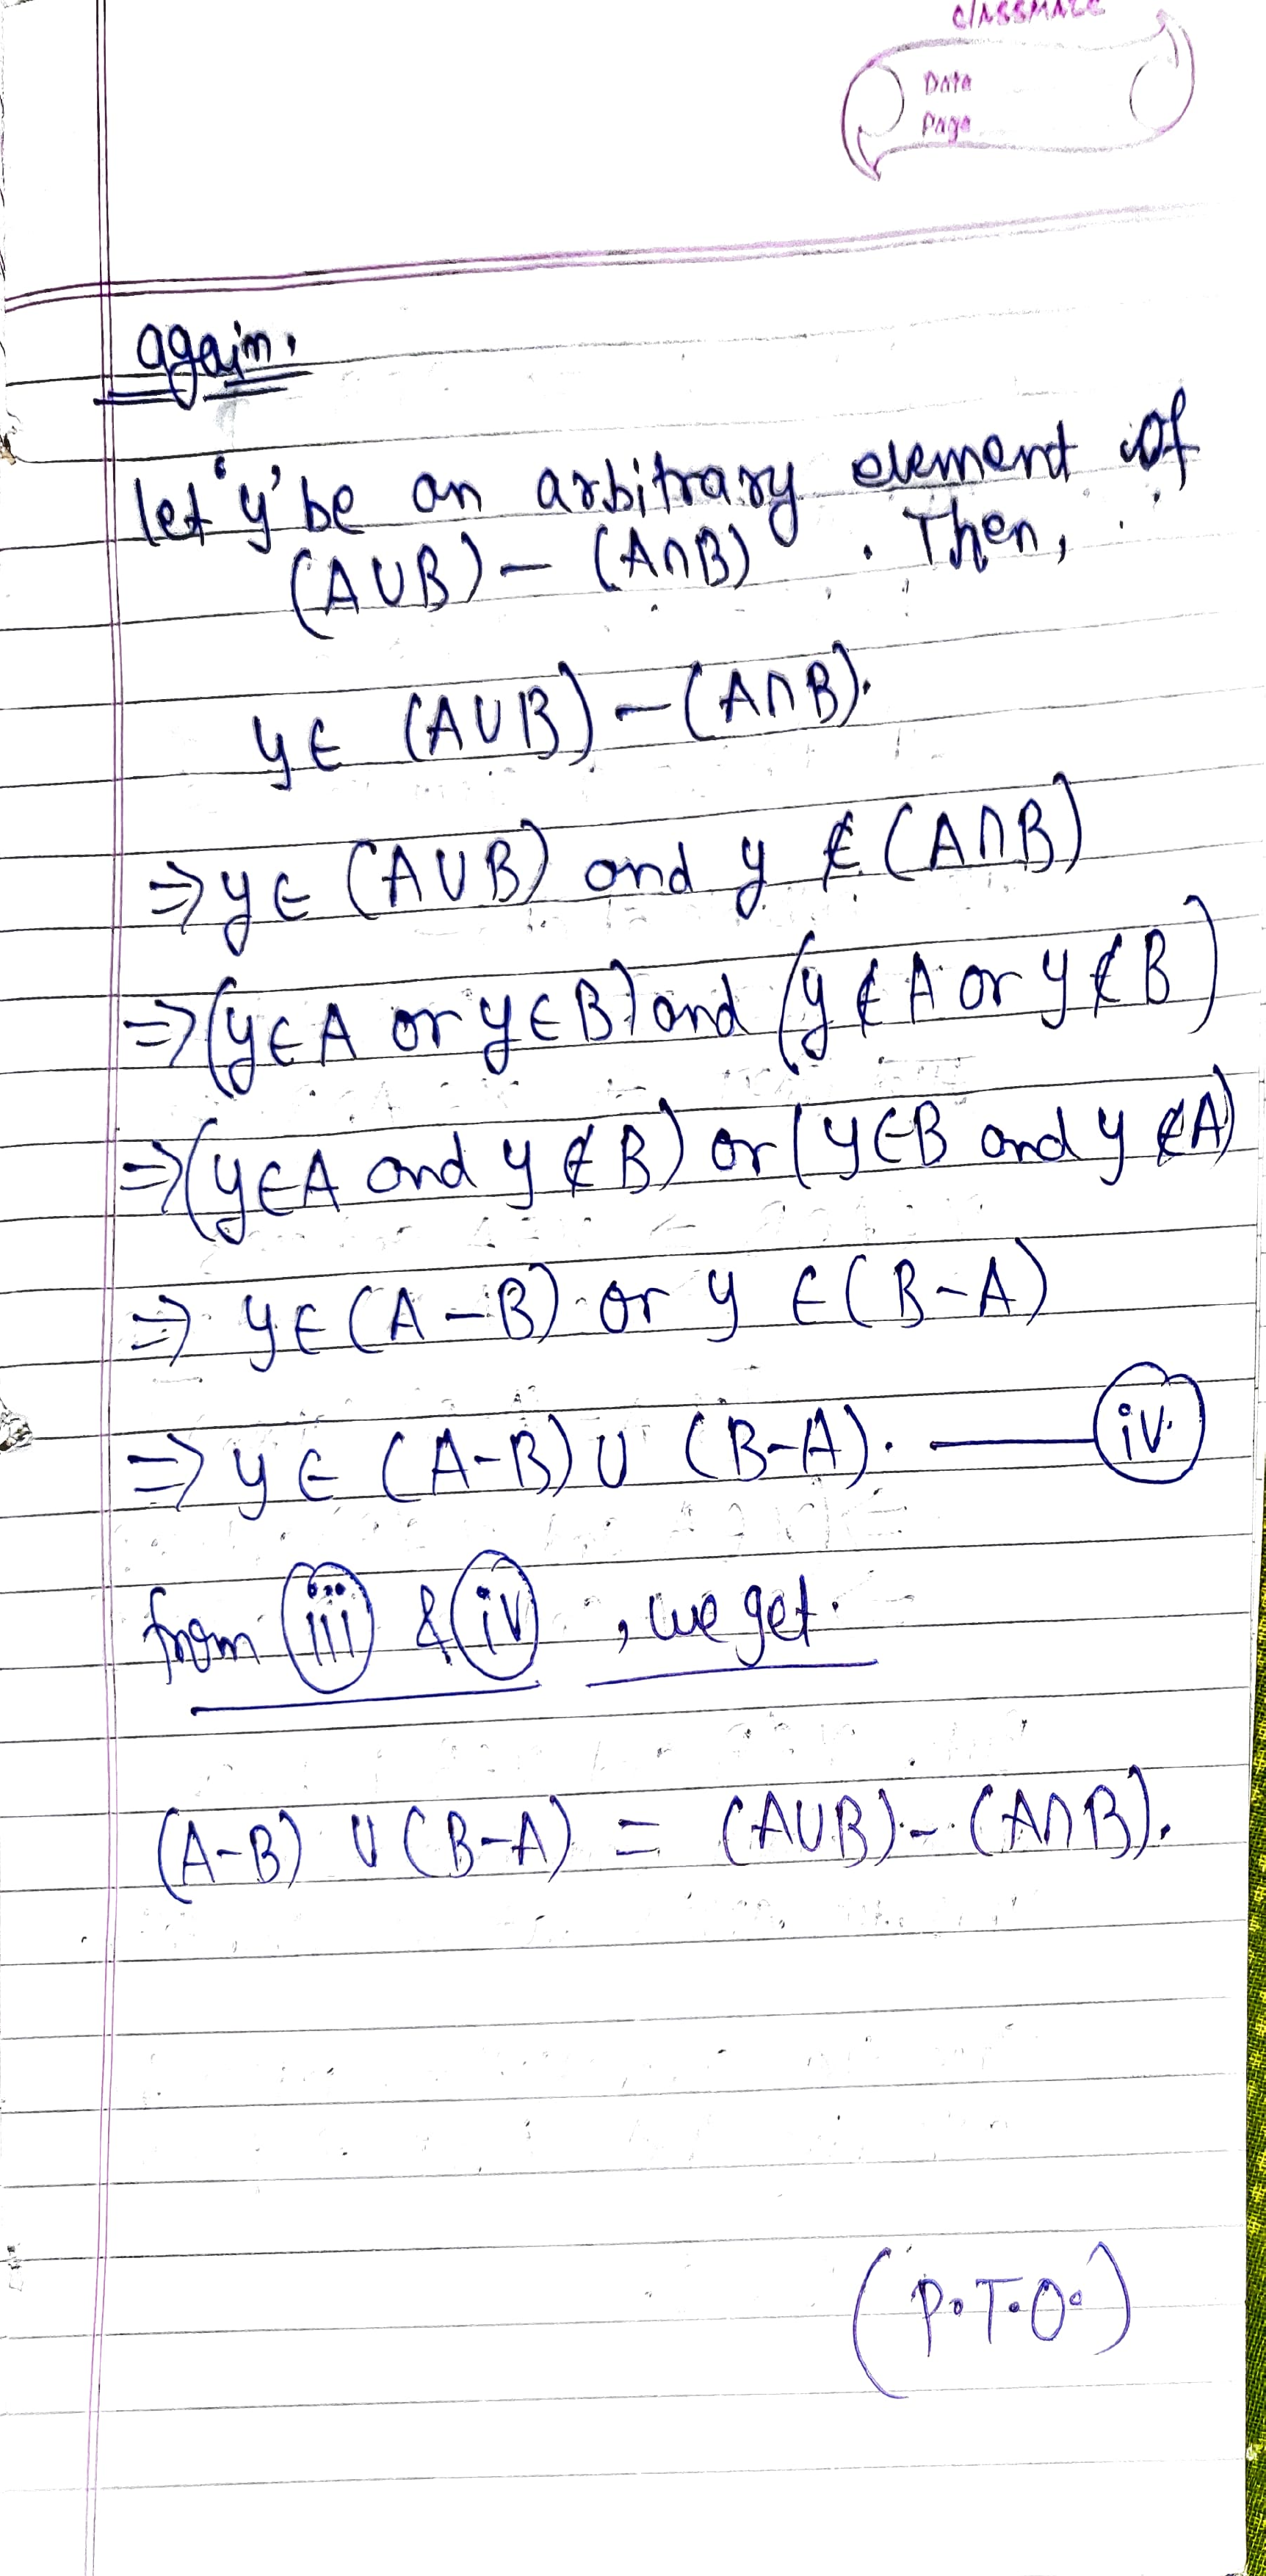 classmate
Date
Page
again,
let 'y' be an arbitrary element of
(A∪B) – (A∩B) . Then,
y ∈ (A∪B) – (A∩B).
⇒ y ∈ (A∪B) and y ∉ (A∩B)
⇒ (y∈A or y∈B) and (y ∉ A or y ∉ B)
⇒ (y∈A and y ∉ B) or (y∈B and y ∉ A)
⇒ y ∈ (A–B) or y ∈ (B–A)
⇒ y ∈ (A–B) ∪ (B–A). — iv.
from iii & iv , we get.
(A–B) ∪ (B–A) = (A∪B) – (A∩B).
(P.T.O.)